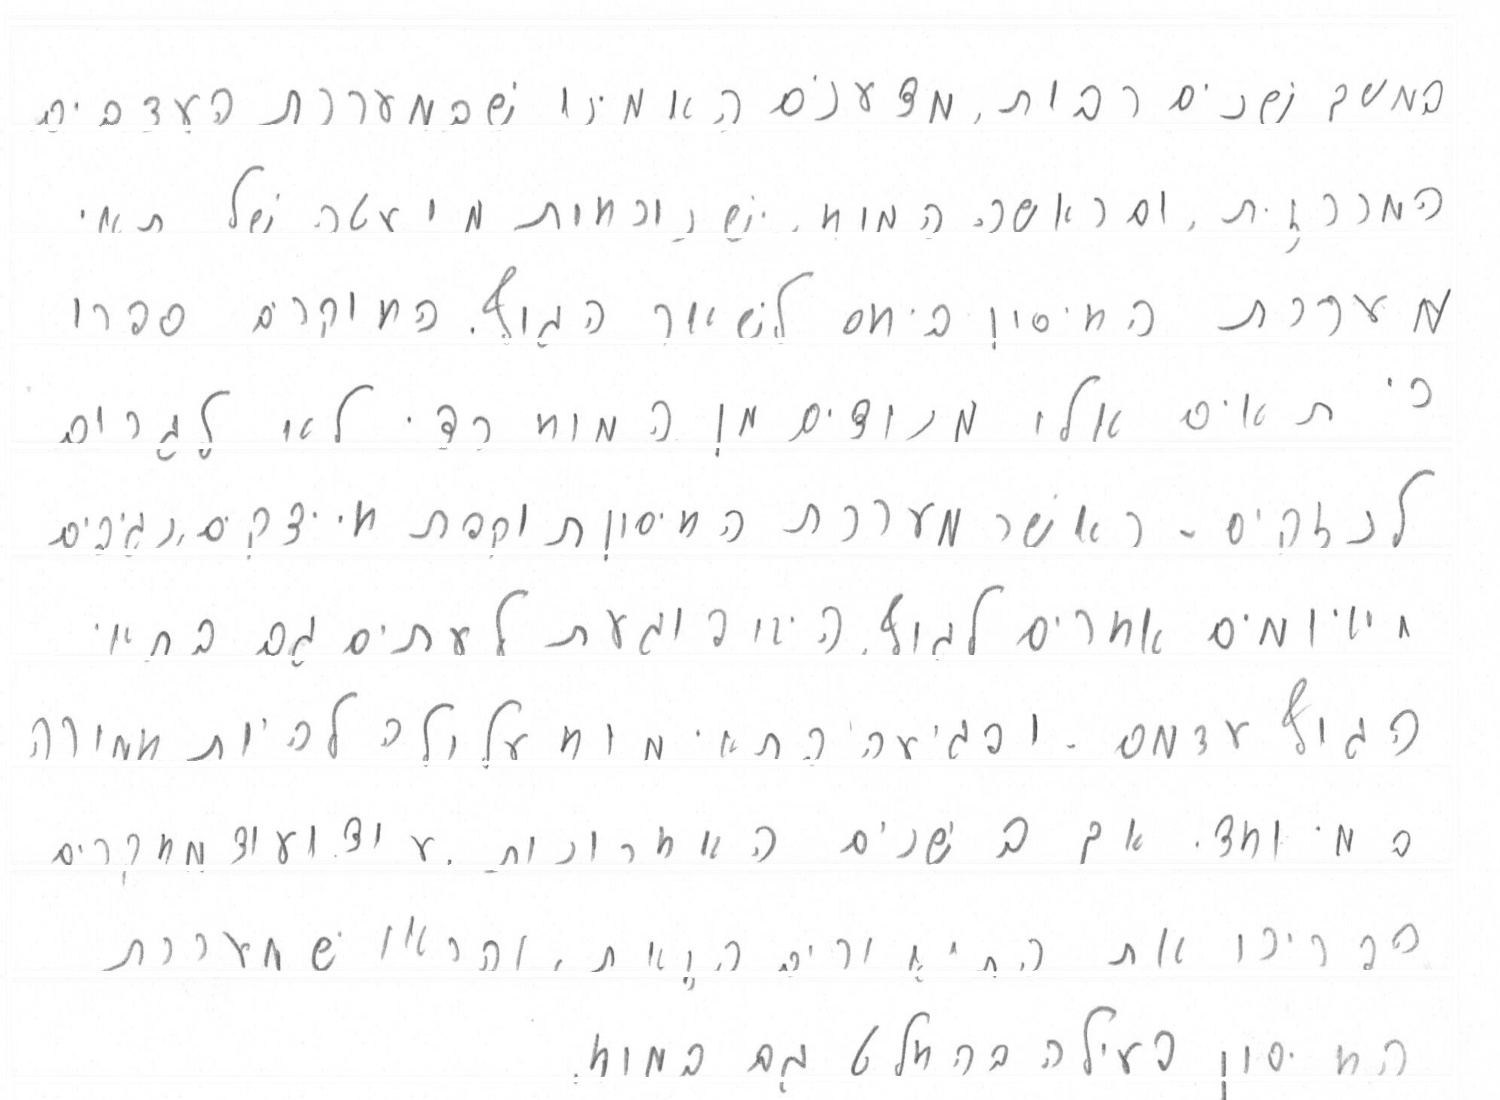 במשך שנים רבות, מדענים האמינו שבמערכת העצבים
המרכזית, ובראשה המוח, יש נוכחות מועטה של תאי
מערכת החיסון ביחס לשאר הגוף. החוקרים סברו
כי תאים אלו מנודים מן המוח כדי לא לגרום
לנזקים - כאשר מערכת החיסון תוקפת חיידקים, נגיפים
ואיומים אחרים לגוף, היא פוגעת לעתים גם בתאי
הגוף עצמם - ופגיעה בתאי מוח עלולה להיות חמורה
במיוחד. אך בשנים האחרונות, עוד ועוד מחקרים
הפריכו את התיאוריה הזאת, והראו שמערכת
החיסון פעילה בהחלט גם במוח.